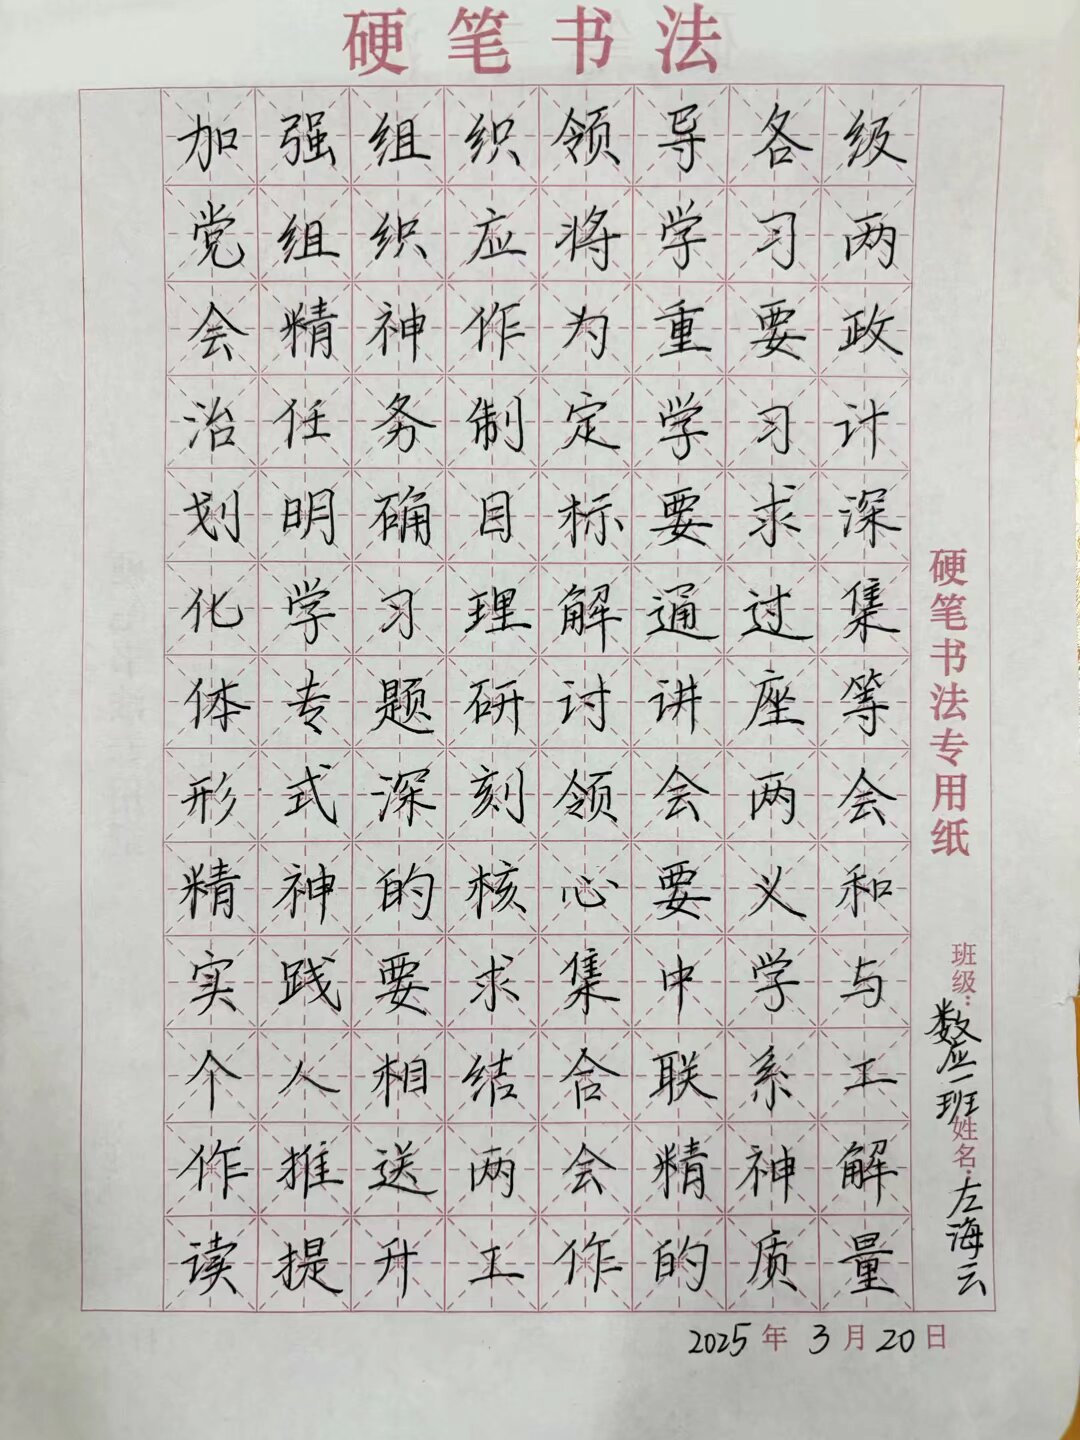 硬笔书法
加强组织领导各级
党组织应将学习两
会精神作为重要政
治任务制定学习计
划明确目标要求深
化学习理解通过集
体专题研讨讲座等
形式深刻领会两会
精神的核心要义和
实践要求集中学与
个人相结合联系工
作推送两会精神解
读提升工作的质量
硬笔书法专用纸
班级:数应一班姓名:左海云
2025年3月20日